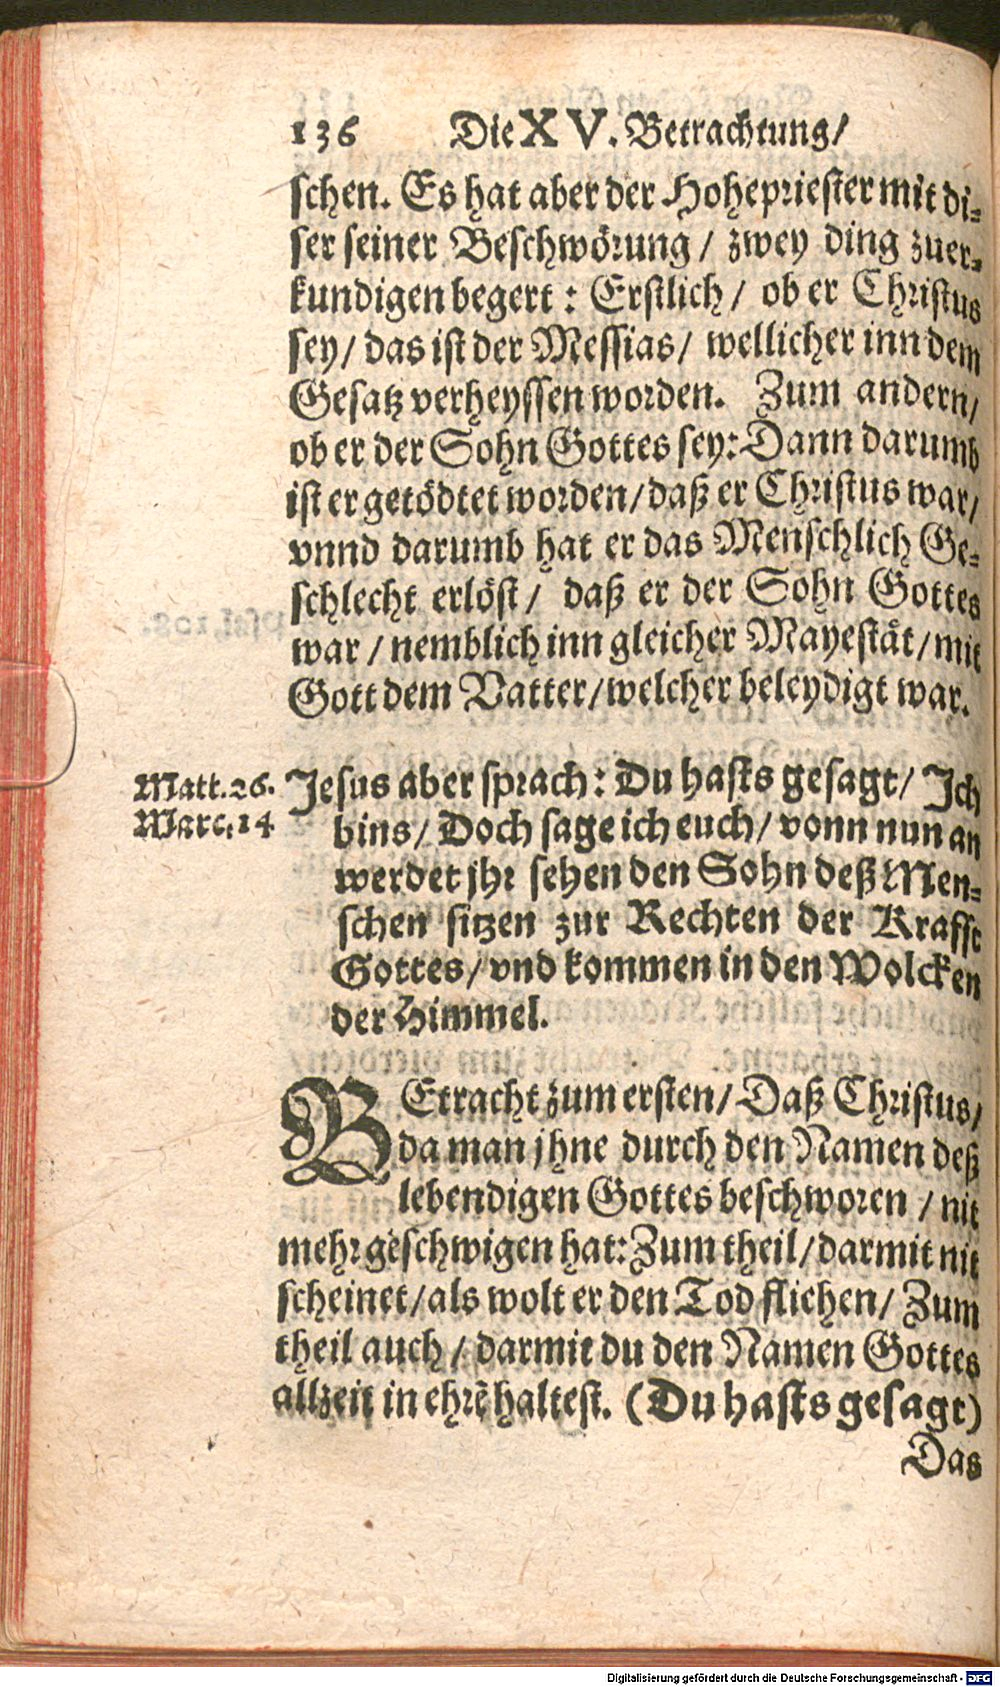 136 Die XV. Betrachtung/
schen. Es hat aber der Hohepriester mit di-
ser seiner Beschwörung / zwey ding zuer-
kundigen begert : Erstlich / ob er Christus
sey / das ist der Messias / wellicher inn dem
Gesatz verheyssen worden. Zum andern /
ob er der Sohn Gottes sey: Dann darumb
ist er getödtet worden / daß er Christus war /
vnnd darumb hat er das Menschlich Ge-
schlecht erlöst / daß er der Sohn Gottes
war / nemblich inn gleicher Mayestät / mit
Gott dem Vatter / welcher beleydigt war.
Matt. 26.
Marc. 14
Jesus aber sprach : Du hasts gesagt / Ich
bins / Doch sage ich euch / vonn nun an
werdet jhr sehen den Sohn deß Men-
schen sitzen zur Rechten der Krafft
Gottes / vnd kommen in den Wolcken
der Himmel.
BEtracht zum ersten / Daß Christus /
da man jhne durch den Namen deß
lebendigen Gottes beschworen / nit
mehr geschwigen hat: Zum theil / darmit nit
scheinet / als wolt er den Tod fliehen / Zum
theil auch / darmit du den Namen Gottes
allzeit in ehrẽ haltest. (Du hasts gesagt)
Das
Digitalisierung gefördert durch die Deutsche Forschungsgemeinschaft - DFG